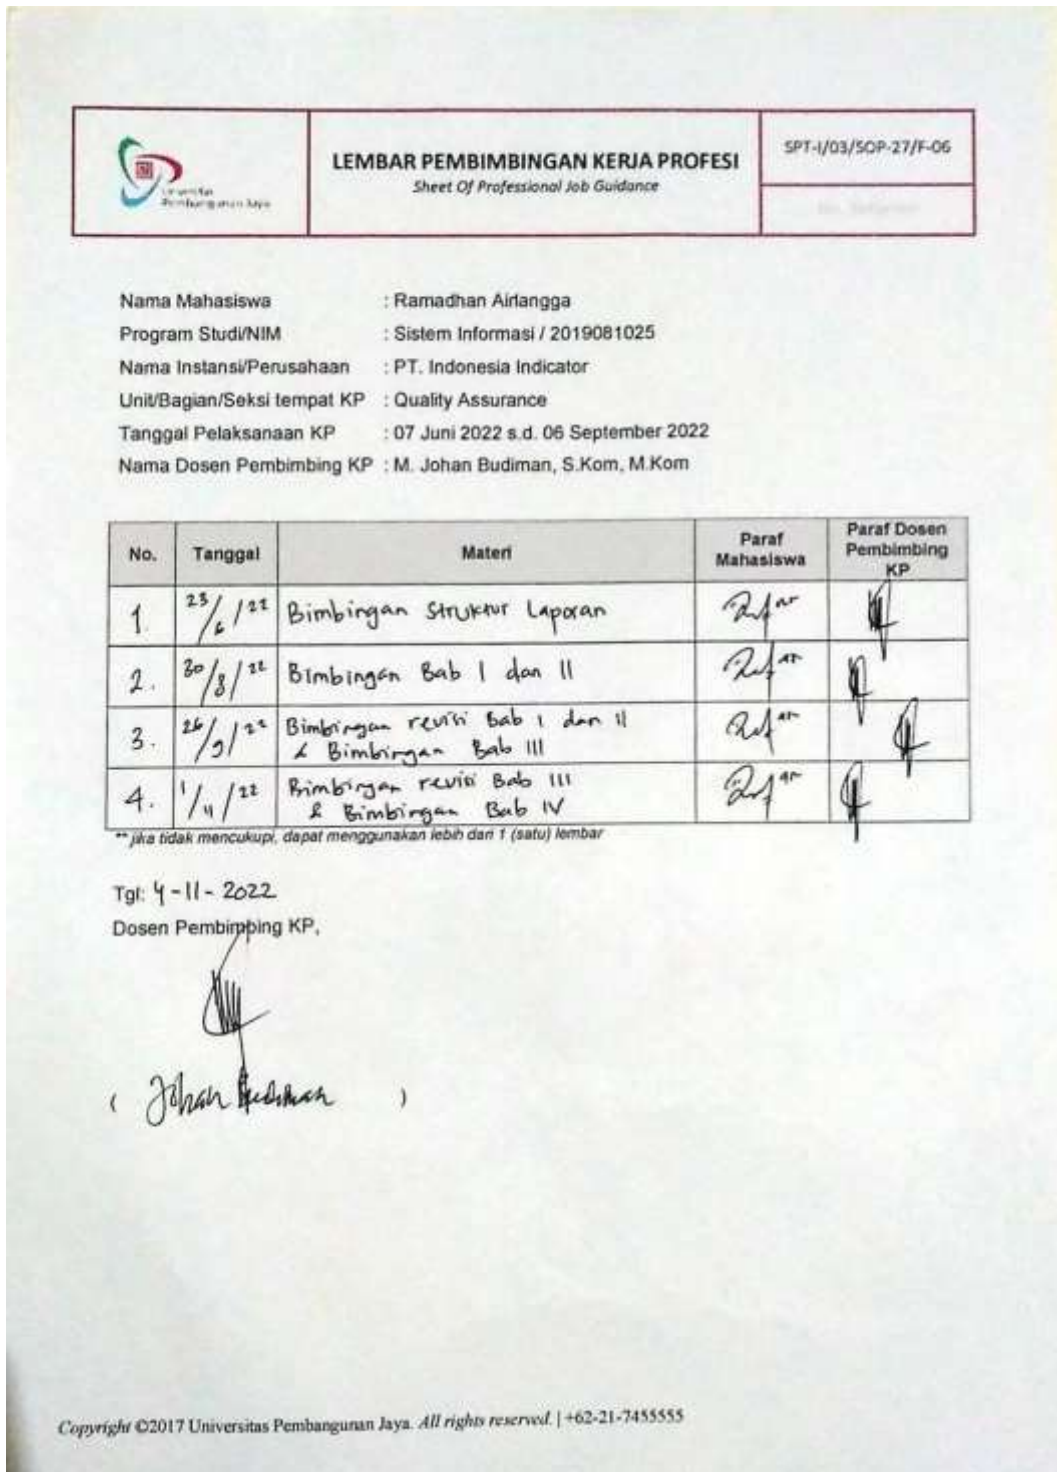 Universitas
Pembangunan Jaya
LEMBAR PEMBIMBINGAN KERJA PROFESI
Sheet Of Professional Job Guidance
SPT-I/03/SOP-27/F-06
Nama Mahasiswa : Ramadhan Airlangga
Program Studi/NIM : Sistem Informasi / 2019081025
Nama Instansi/Perusahaan : PT. Indonesia Indicator
Unit/Bagian/Seksi tempat KP : Quality Assurance
Tanggal Pelaksanaan KP : 07 Juni 2022 s.d. 06 September 2022
Nama Dosen Pembimbing KP : M. Johan Budiman, S.Kom, M.Kom
No. Tanggal Materi Paraf Mahasiswa Paraf Dosen Pembimbing KP
1. 23/6/22 Bimbingan Struktur Laporan
2. 30/8/22 Bimbingan Bab I dan II
3. 26/9/22 Bimbingan revisi Bab I dan II
& Bimbingan Bab III
4. 1/11/22 Bimbingan revisi Bab III
& Bimbingan Bab IV
** jika tidak mencukupi, dapat menggunakan lebih dari 1 (satu) lembar
Tgl: 4-11-2022
Dosen Pembimbing KP,
( Johan Budiman )
Copyright ©2017 Universitas Pembangunan Jaya. All rights reserved. | +62-21-7455555